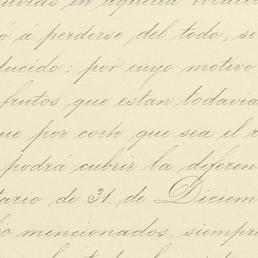 en aquella
ó á perderse del todo, si
ducido: por cuyo motivo
frutos, que estan todavia
ue por corto que sea el r
podrá cubrir la diferen
tario de 31 de Diciem
o mencionados, siempr